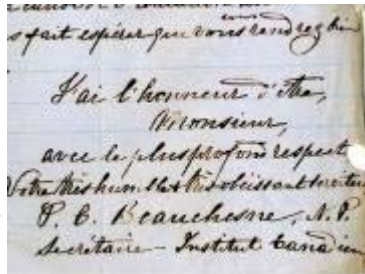 s fait espérer que vous rendrez bien
J'ai l'honneur d'être,
Monsieur,
avec le plus profond respect
Votre très humble & très obéissant
P. C. Beauchesne, N. P.
Secrétaire - Institut Canadien